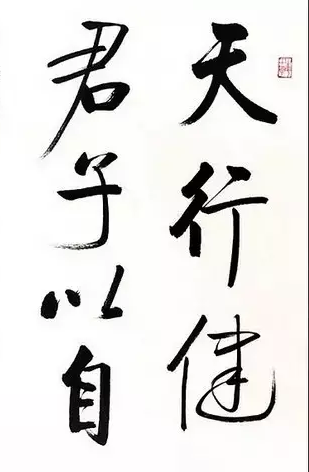 天行健
君子以自